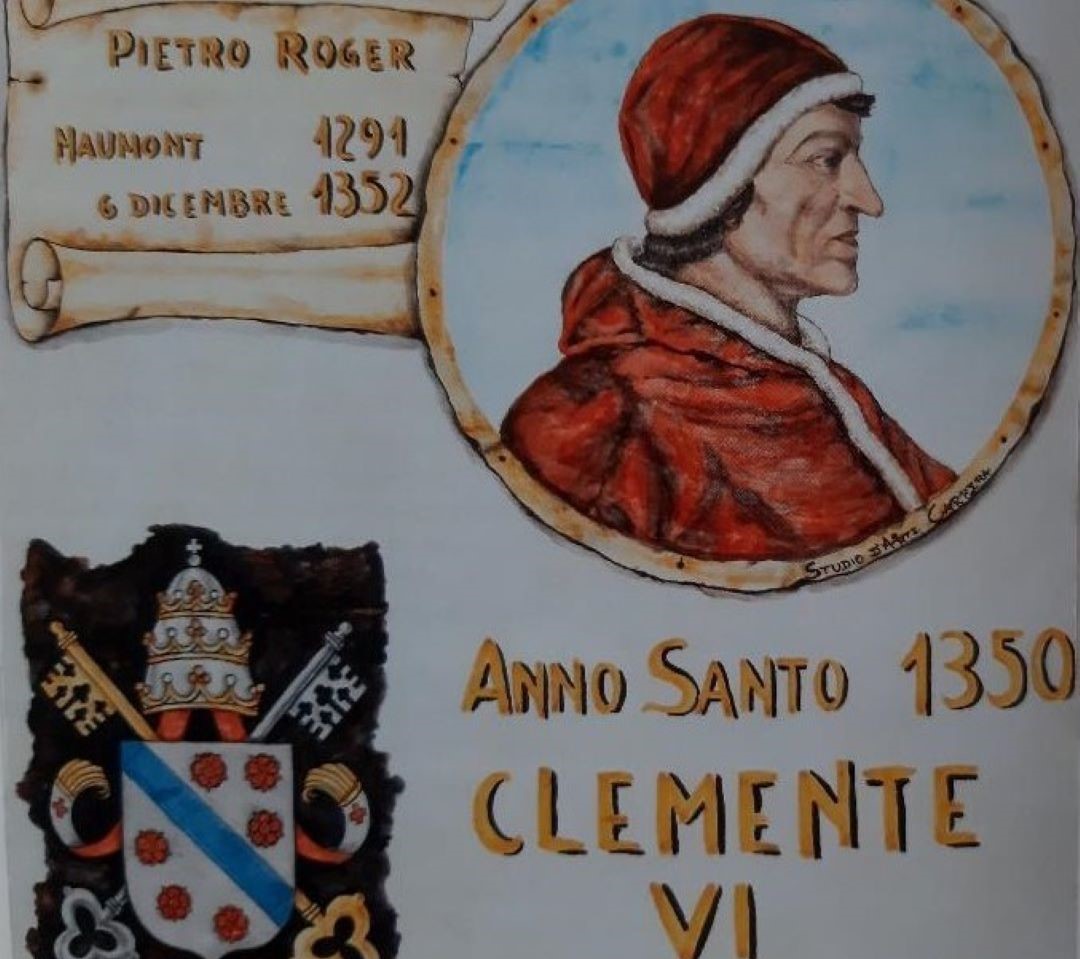 PIETRO ROGER
MAUMONT 1291
6 DICEMBRE 1352
STUDIO D'ARTE CARTERA
ANNO SANTO 1350
CLEMENTE
VI